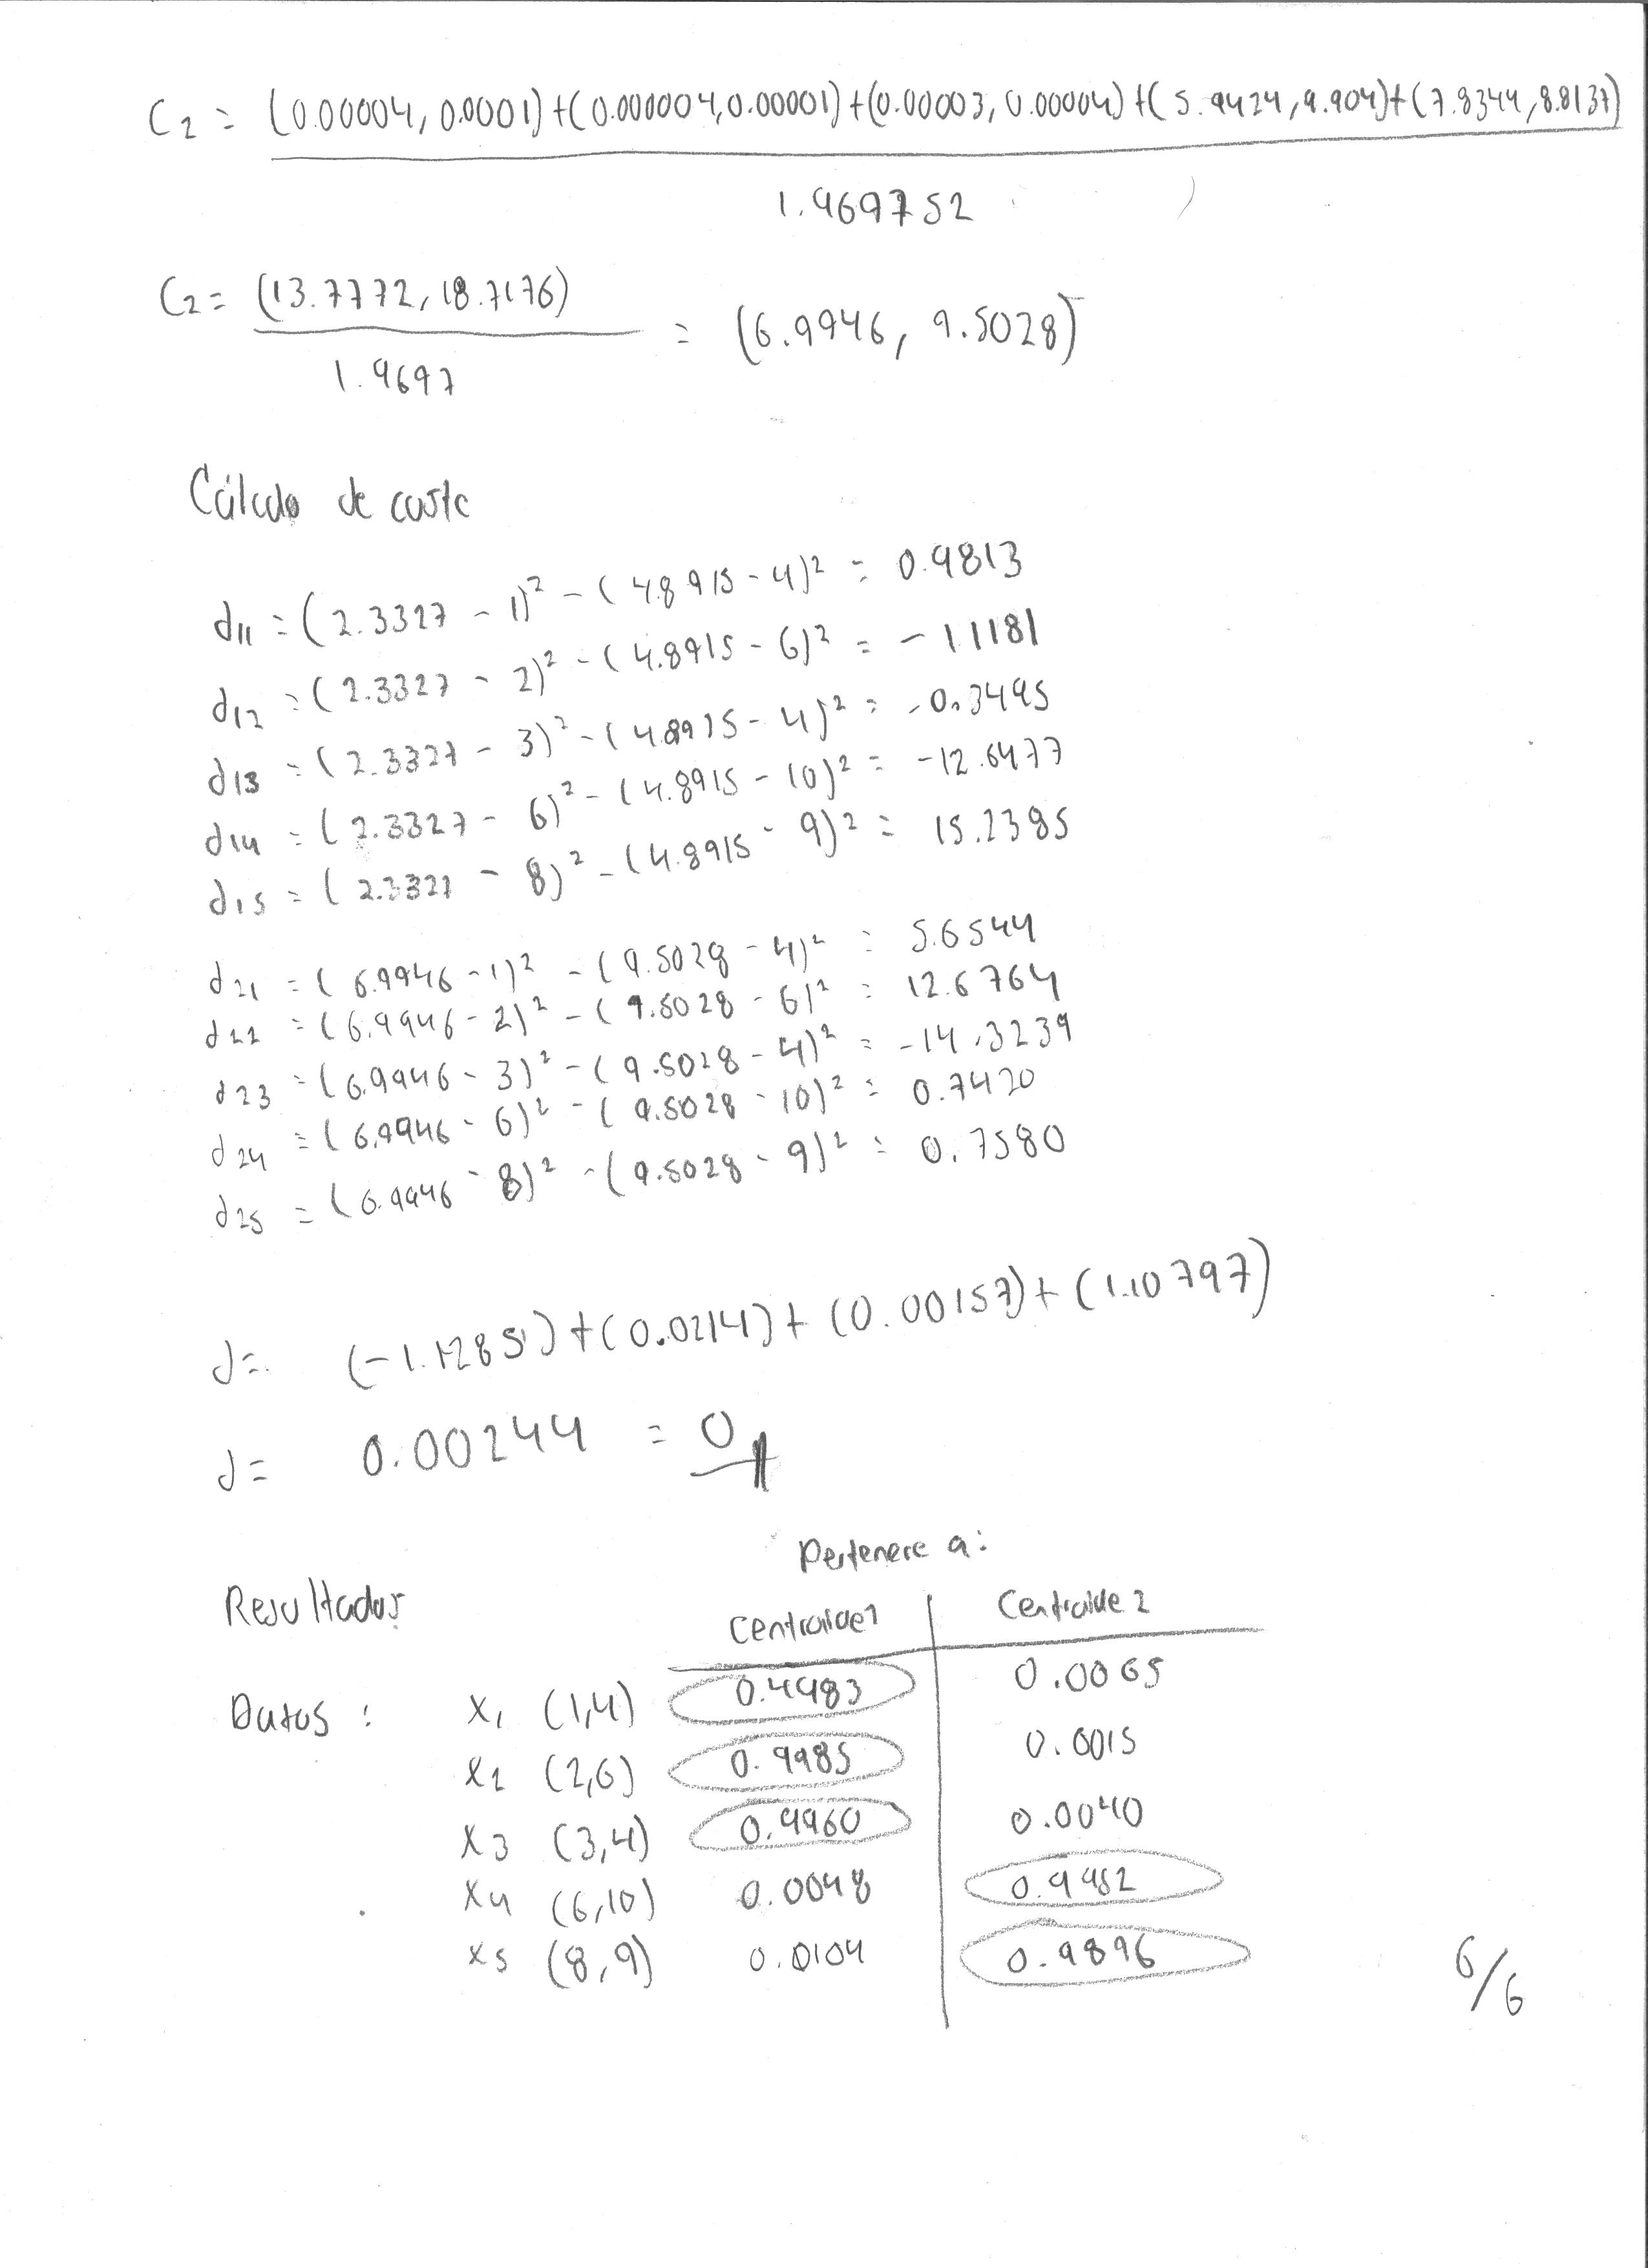 C2 = (0.00004, 0.0001)+(0.000004,0.00001)+(0.00003, 0.00004)+(5.9424,9.904)+(7.8344,8.8137)
1.969752
C2 = (13.7772, 18.7176)
1.9697
= (6.9946, 9.5028)
Cálculo de coste
d11 = (2.3327 - 1)² - (4.8915-4)² = 0.9813
d12 = (2.3327 - 2)² - (4.8915-6)² = -1.1181
d13 = (2.3327 - 3)² - (4.8915-4)² = -0.3495
d14 = (2.3327 - 6)² - (4.8915-10)² = -12.6477
d15 = (2.3327 - 8)² - (4.8915-9)² = 15.2385
d21 = (6.9946-1)² - (9.5028-4)² = 5.6544
d22 = (6.9946-2)² - (9.5028-6)² = 12.6764
d23 = (6.9946-3)² - (9.5028-4)² = -14.3239
d24 = (6.9946-6)² - (9.5028-10)² = 0.7420
d25 = (6.9946-8)² - (9.5028-9)² = 0.7580
J = (-1.1285)+(0.0214)+(0.00157)+(1.10797)
J = 0.00244 = 0
Pertenece a:
Resultados
Centroide1 Centroide 2
Datos : X1 (1,4) 0.9983 0.0065
X2 (2,6) 0.9985 0.0015
X3 (3,4) 0.9960 0.0040
X4 (6,10) 0.0048 0.9952
X5 (8,9) 0.0104 0.9896
6/6